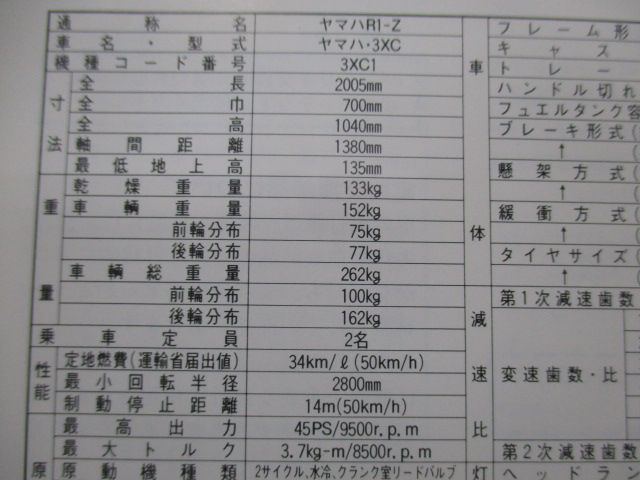 通称名 ヤマハR1-Z
車名・型式 ヤマハ・3XC
機種コード番号 3XC1
寸法
全長 2005mm
全巾 700mm
全高 1040mm
軸間距離 1380mm
最低地上高 135mm
重量
乾燥重量 133kg
車輌重量 152kg
前輪分布 75kg
後輪分布 77kg
車輌総重量 262kg
前輪分布 100kg
後輪分布 162kg
乗車定員 2名
性能
定地燃費(運輸省届出値) 34km/ℓ(50km/h)
最小回転半径 2800mm
制動停止距離 14m(50km/h)
原
最高出力 45PS/9500r.p.m
最大トルク 3.7kg-m/8500r.p.m
原動機種類 2サイクル、水冷、クランク室リードバルブ
車体
フレーム形
キャス
トレー
ハンドル切れ
フュエルタンク容
ブレーキ形式(
↑ (
懸架方式(
↑ (
緩衝方式(
↑ (
タイヤサイズ(
↑ (
減速比
第1次減速歯数
変速歯数・比
第2次減速歯数
灯
ヘッドラン